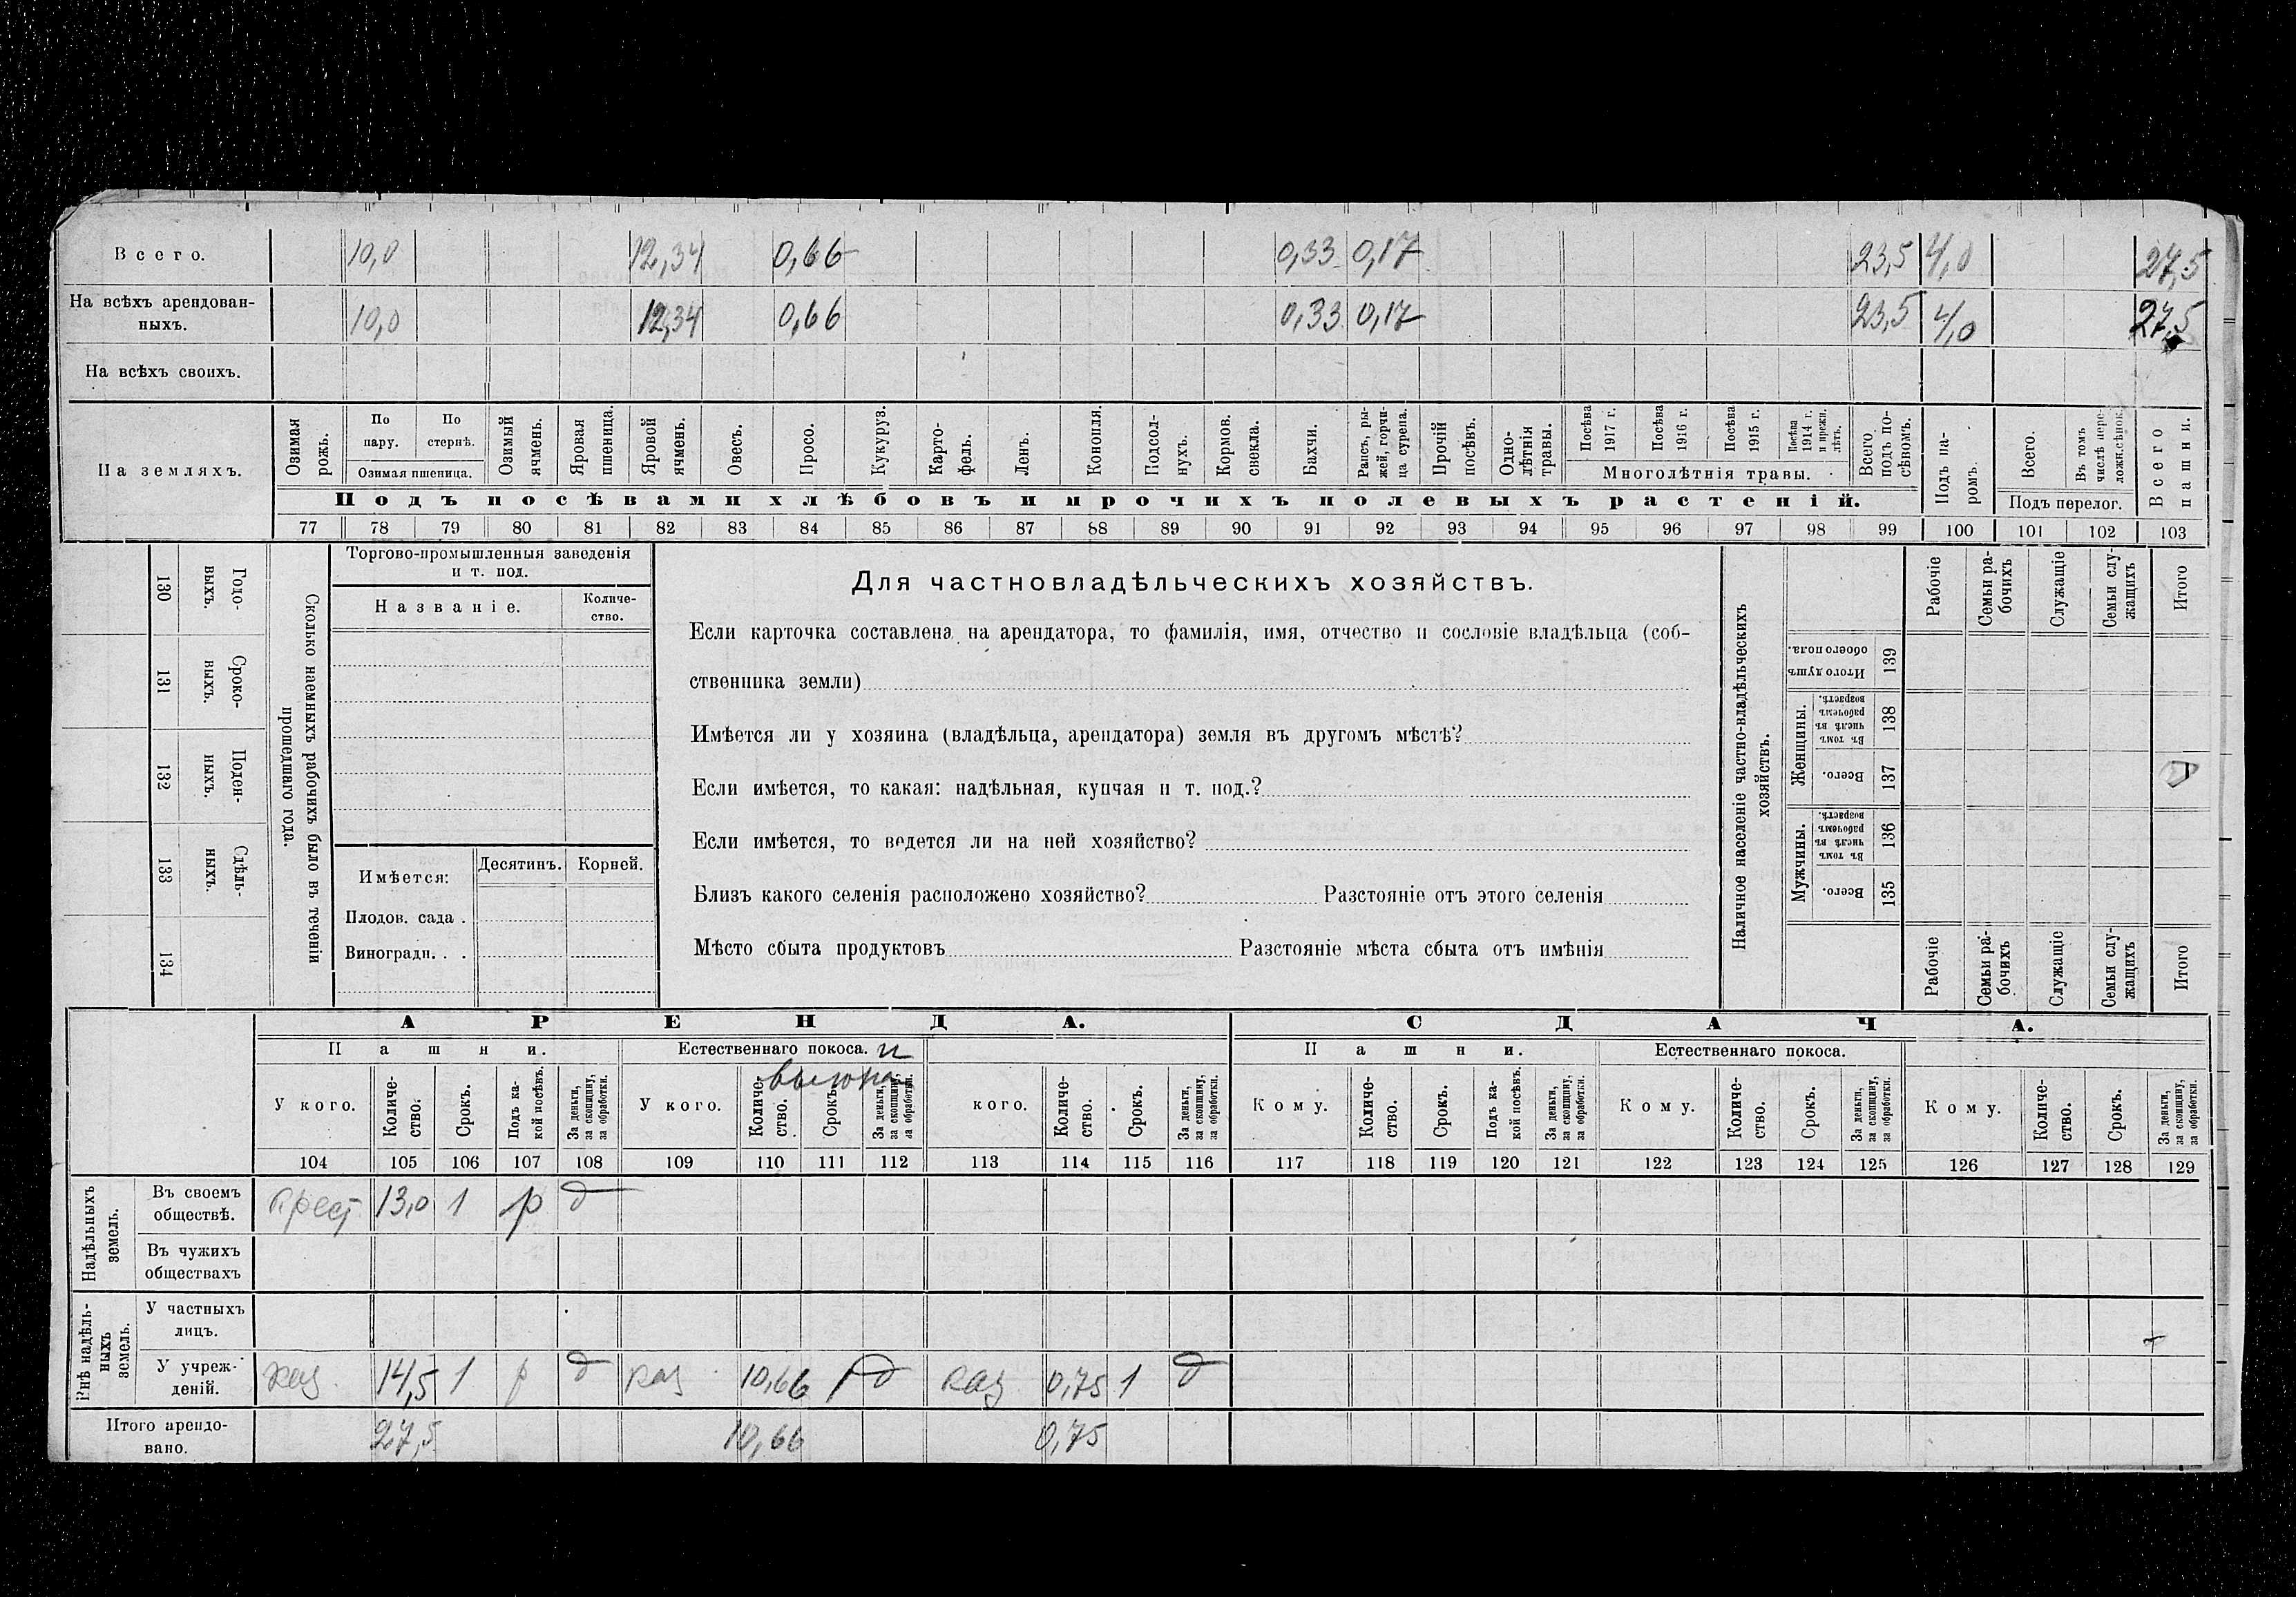 Всего. 10,0 12,34 0,66 0,33 0,17 23,5 4,0 27,5
На всѣхъ арендован-
ныхъ. 10,0 12,34 0,66 0,33 0,17 23,5 4,0 27,5
На всѣхъ своихъ.
На земляхъ.
Озимая рожь.
По пару.
По стернѣ.
Озимая пшеница.
Озимый ячмень.
Яровая пшеница.
Яровой ячмень.
Овесъ.
Просо.
Кукуруз.
Карто-
фель.
Ленъ.
Конопля.
Подсол-
нухъ.
Кормов. свекла.
Бахчи.
Рапсъ, ры-
жей, горчи-
ца сурепа.
Прочій посѣвъ.
Одно-
лѣтнія травы.
Посѣва 1917 г.
Посѣва 1916 г.
Посѣва 1915 г.
Посѣва 1914 г. и прежн. лѣтъ.
Многолѣтнія травы.
Всего подъ по-
сѣвомъ.
Подъ па-
ромъ.
Всего.
Въ томъ числѣ пере-
ложн.сѣнок.
Подъ перелог.
Всего пашни.
Подъ посѣвами хлѣбовъ и прочихъ полевыхъ растеній.
77 78 79 80 81 82 83 84 85 86 87 88 89 90 91 92 93 94 95 96 97 98 99 100 101 102 103
130 Годо-
выхъ.
131 Сроко-
выхъ.
132 Поден-
ныхъ.
133 Сдѣль-
ныхъ.
134
Сколько наемныхъ рабочихъ было въ теченіи
прошедшаго года.
Торгово-промышленныя заведенія
и т. под.
Названіе.
Количе-
ство.
Имѣется:
Десятинъ.
Корней.
Плодов. сада .
Виноградн. . .
Для частновладѣльческихъ хозяйствъ.
Если карточка составлена на арендатора, то фамилія, имя, отчество и сословіе владѣльца (соб-
ственника земли)
Имѣется ли у хозяина (владѣльца, арендатора) земля въ другомъ мѣстѣ?
Если имѣется, то какая: надѣльная, купчая и т. под.?
Если имѣется, то ведется ли на ней хозяйство?
Близъ какого селенія расположено хозяйство? Разстояніе отъ этого селенія
Мѣсто сбыта продуктовъ Разстояніе мѣста сбыта отъ имѣнія
Наличное населеніе частно-владѣльческихъ
хозяйствъ.
Рабочіе
Семьи ра-
бочихъ
Служащіе
Семьи слу-
жащихъ
Итого
Итого душъ обоего пола. 139
Женщины.
Въ томъ числѣ въ рабочемъ возрастѣ. 138
Всего. 137
Мужчины.
Въ томъ числѣ въ рабочемъ возрастѣ. 136
Всего. 135
Рабочіе
Семьи ра-
бочихъ
Служащіе
Семьи слу-
жащихъ
Итого
АРЕНДА. СДАЧА.
Пашни. Естественнаго покоса. и Пашни. Естественнаго покоса.
У кого.
Количе-
ство.
Срокъ.
Подъ ка-
кой посѣвъ.
За деньги, за скопщину, за обработки.
У кого.
Количе-
ство.
Срокъ.
За деньги, за скопщину, за обработки.
кого.
Количе-
ство.
Срокъ.
За деньги, за скопщину, за обработки.
Кому.
Количе-
ство.
Срокъ.
Подъ ка-
кой посѣвъ.
За деньги, за скопщину, за обработки.
Кому.
Количе-
ство.
Срокъ.
За деньги, за скопщину, за обработки.
Кому.
Количе-
ство.
Срокъ.
За деньги, за скопщину, за обработки.
104 105 106 107 108 109 110 111 112 113 114 115 116 117 118 119 120 121 122 123 124 125 126 127 128 129
Надѣльныхъ
земель.
Въ своемъ
обществѣ. крест 13,0 1 р д
Въ чужихъ
обществахъ
Внѣ надѣль-
ныхъ
земель.
У частныхъ
лицъ.
У учреж-
деній. каз 14,5 1 р д каз 10,66 1 д каз 0,75 1 д
Итого арендо-
вано. 27,5 10,66 0,75